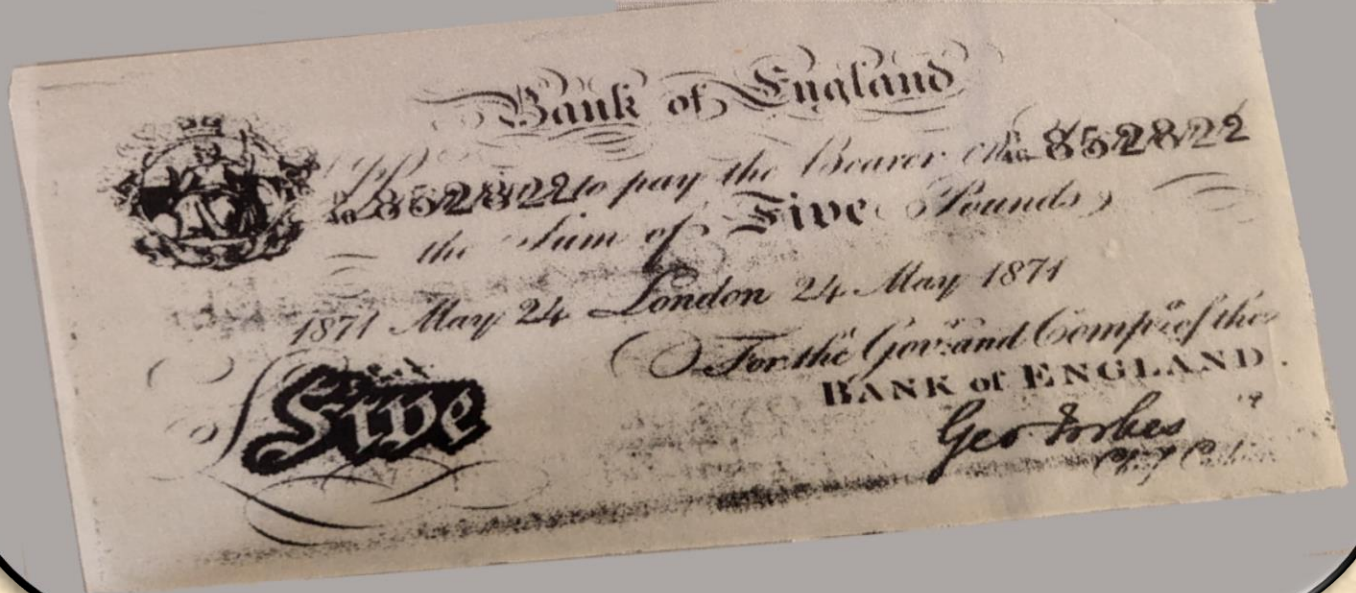 Bank of England
to pay the Bearer No. 852822
No. 852822
the Sum of Five Pounds
1871 May 24 London 24 May 1871
For the Gov.r and Comp.a of the
BANK of ENGLAND.
Five
Geo Forbes
Chief Cashier